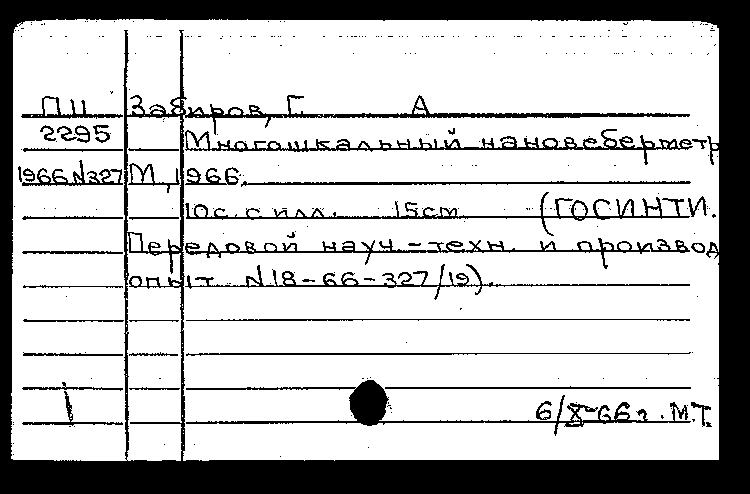 ПЦ Забиров, Г. А
2295 Многошкальный нановеберметр
1966 N327 М, 1966.
10с. с илл. 15см (ГОСИНТИ.
Передовой науч.-техн. и производ
опыт N18-66-327/19).
1 6/X-66г. М.Т.